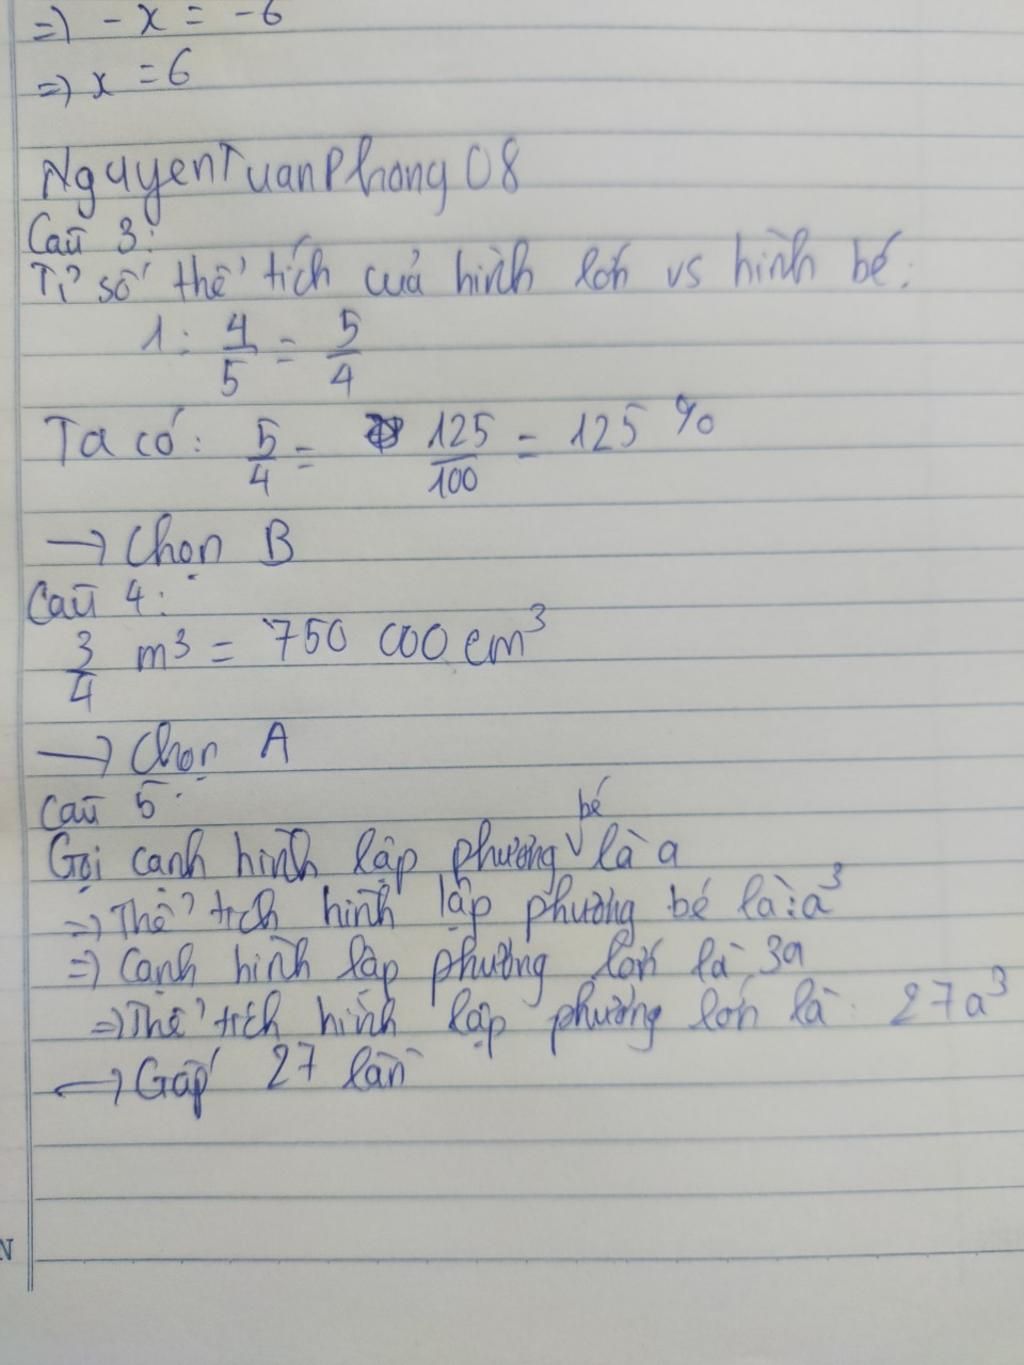 => -x = -6
=> x = 6
NguyenTuanPhong08
Câu 3:
Tỉ số thể tích của hình lớn vs hình bé:
1 : 4/5 = 5/4
Ta có: 5/4 = 125/100 = 125 %
→ Chọn B
Câu 4:
3/4 m³ = 750 000 cm³
→ Chọn A
Câu 5:
bé
Gọi cạnh hình lập phương ˅ là a
=> Thể tích hình lập phương bé là: a³
=> Cạnh hình lập phương lớn là 3a
=> Thể tích hình lập phương lớn là: 27a³
→ Gấp 27 lần
N